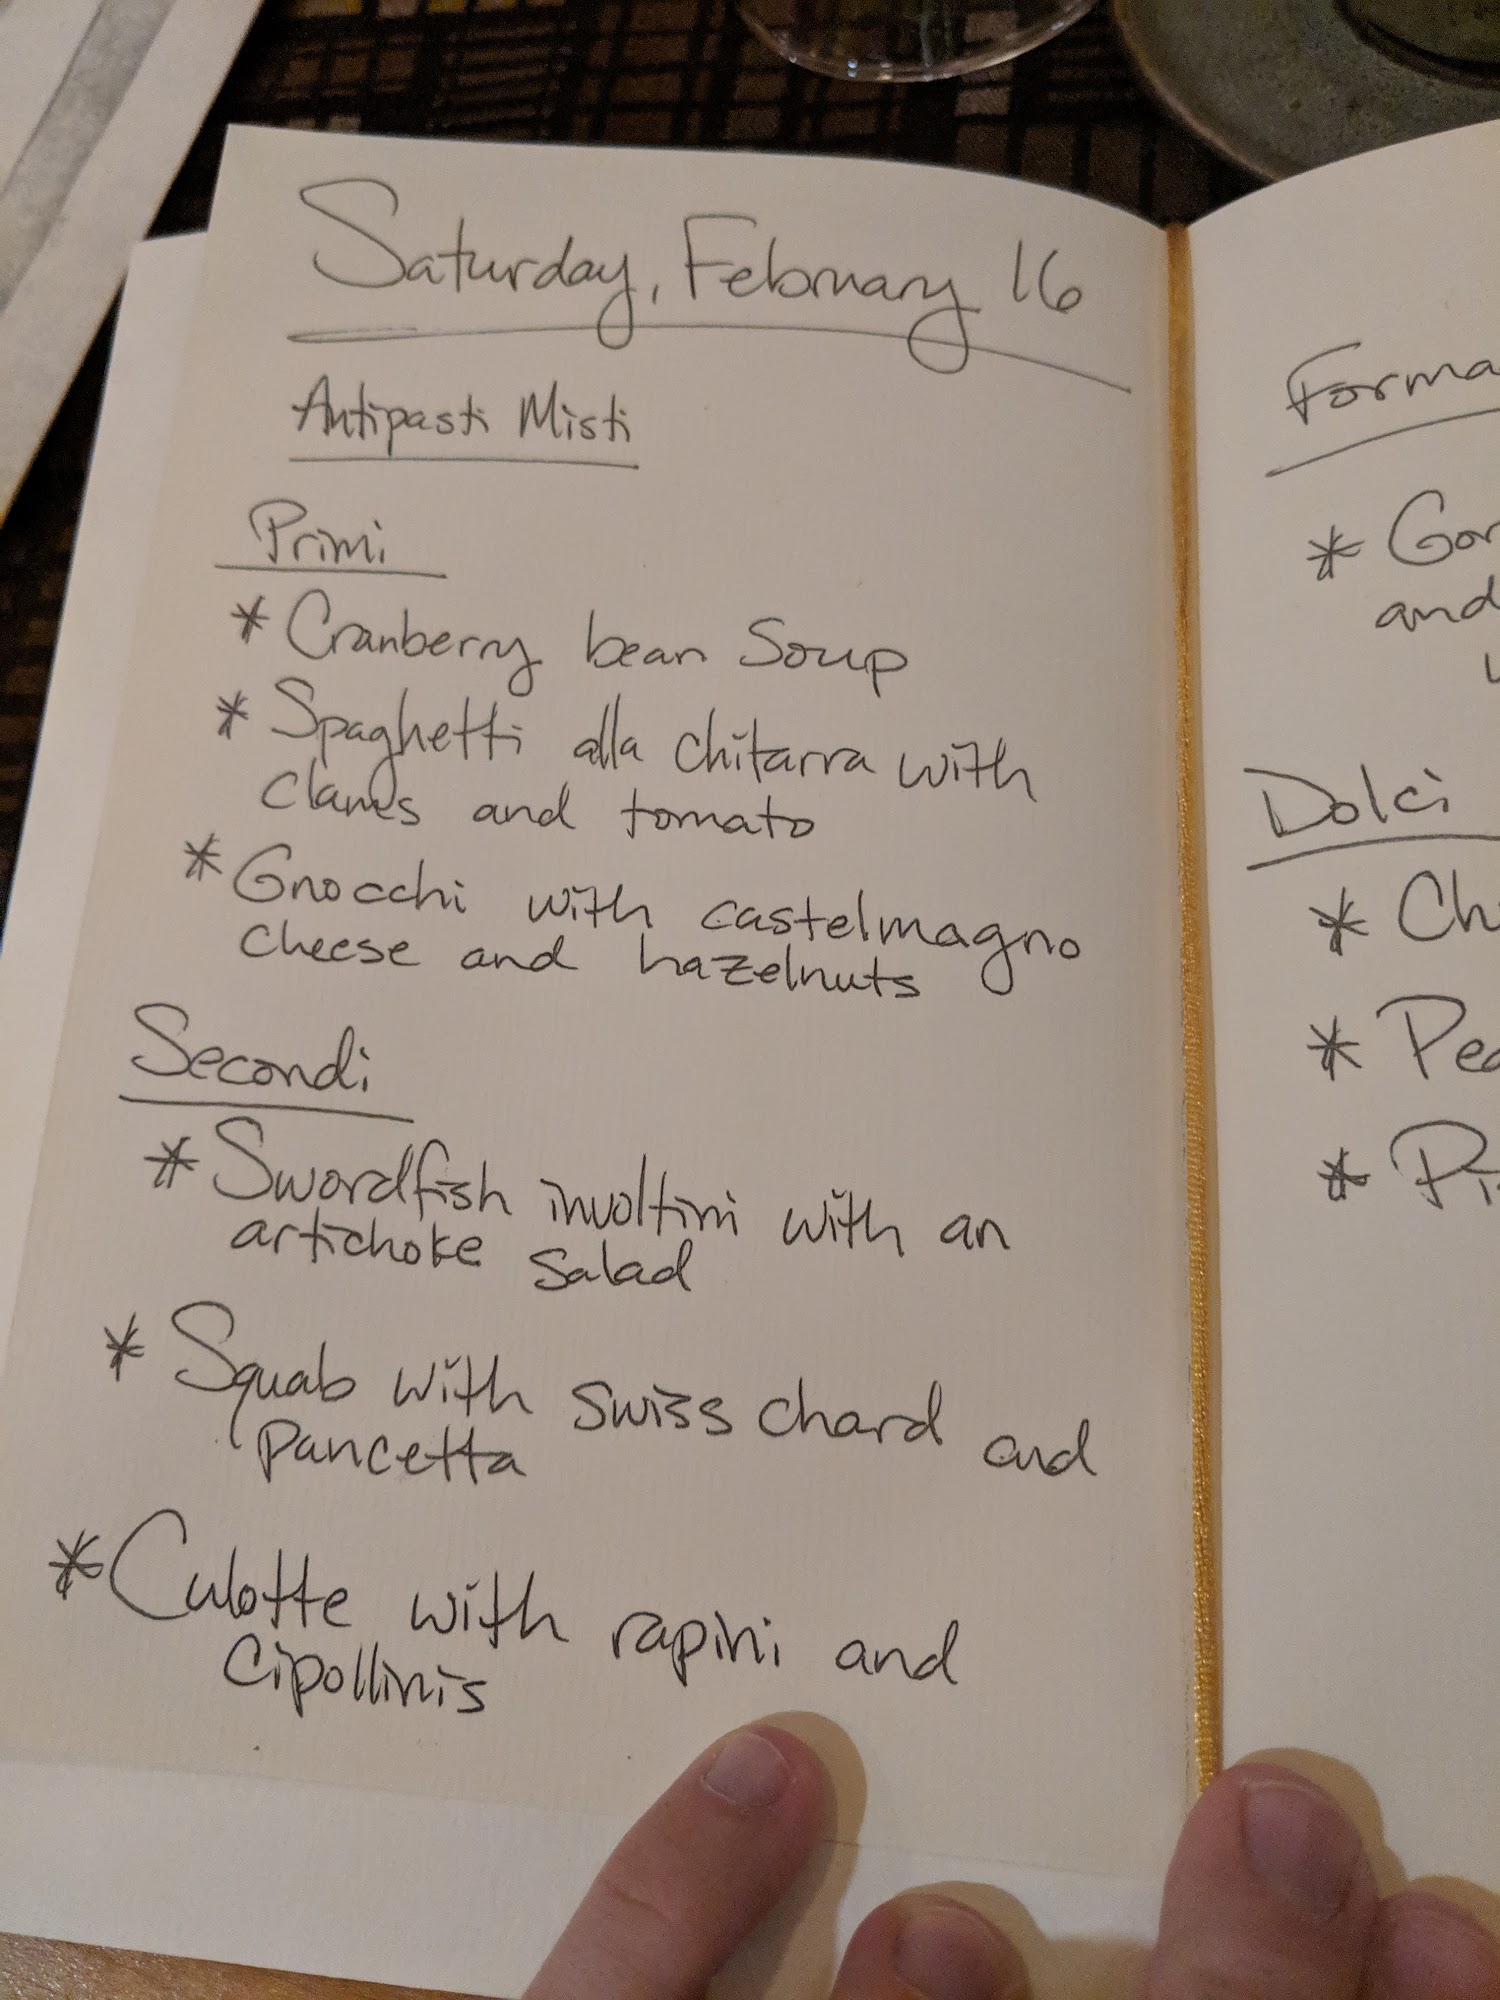 Saturday, February 16
Antipasti Misti
Primi
* Cranberry bean Soup
* Spaghetti alla chitarra with
clams and tomato
* Gnocchi with castelmagno
cheese and hazelnuts
Secondi
* Swordfish involtini with an
artichoke salad
* Squab with swiss chard and
pancetta
* Culotte with rapini and
cipollinis
*
and
Dolci
*
*
*